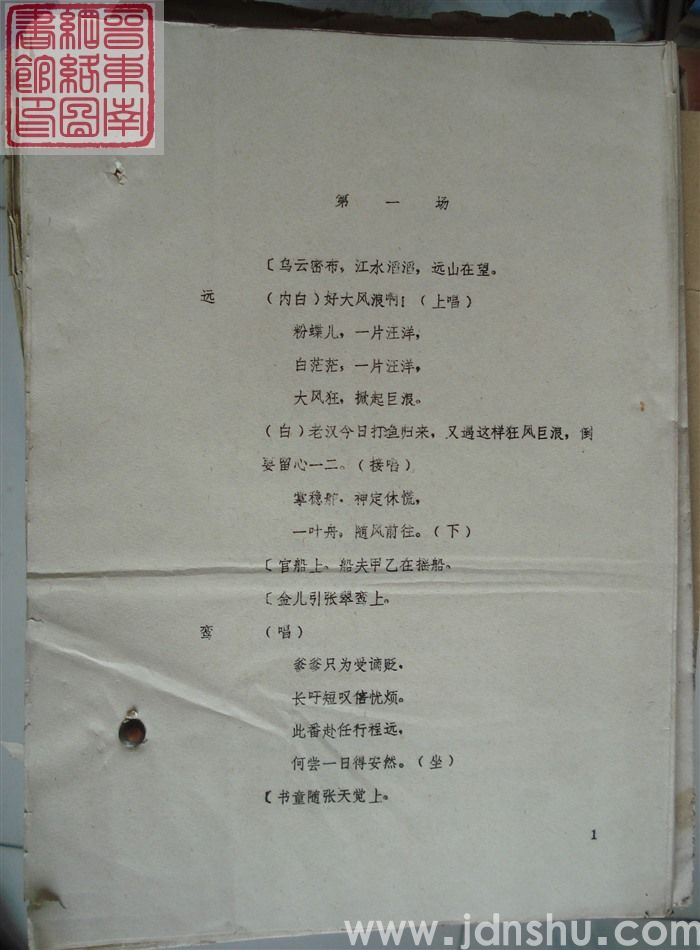 晋东南
网络图
书馆印
第一场
〔乌云密布，江水滔滔，远山在望。
远 （内白）好大风浪啊！（上唱）
粉蝶儿，一片汪洋，
白茫茫，一片汪洋，
大风狂，掀起巨浪。
（白）老汉今日打鱼归来，又遇这样狂风巨浪，倒
要留心一二。（接唱）
掌稳舵，神定休慌，
一叶舟，随风前往。（下）
〔官船上。船夫甲乙在摇船。
〔金儿引张翠鸾上。
鸾 （唱）
爹爹只为受谪贬，
长吁短叹倍忧烦。
此番赴任行程远，
何尝一日得安然。（坐）
〔书童随张天觉上。
1
www.jdnshu.com